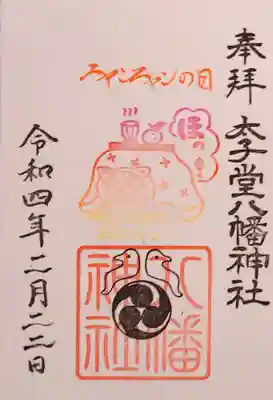 奉拝
太子堂八幡神社
ニャンニャンニャンの日
八幡
神社
令和四年二月二二日